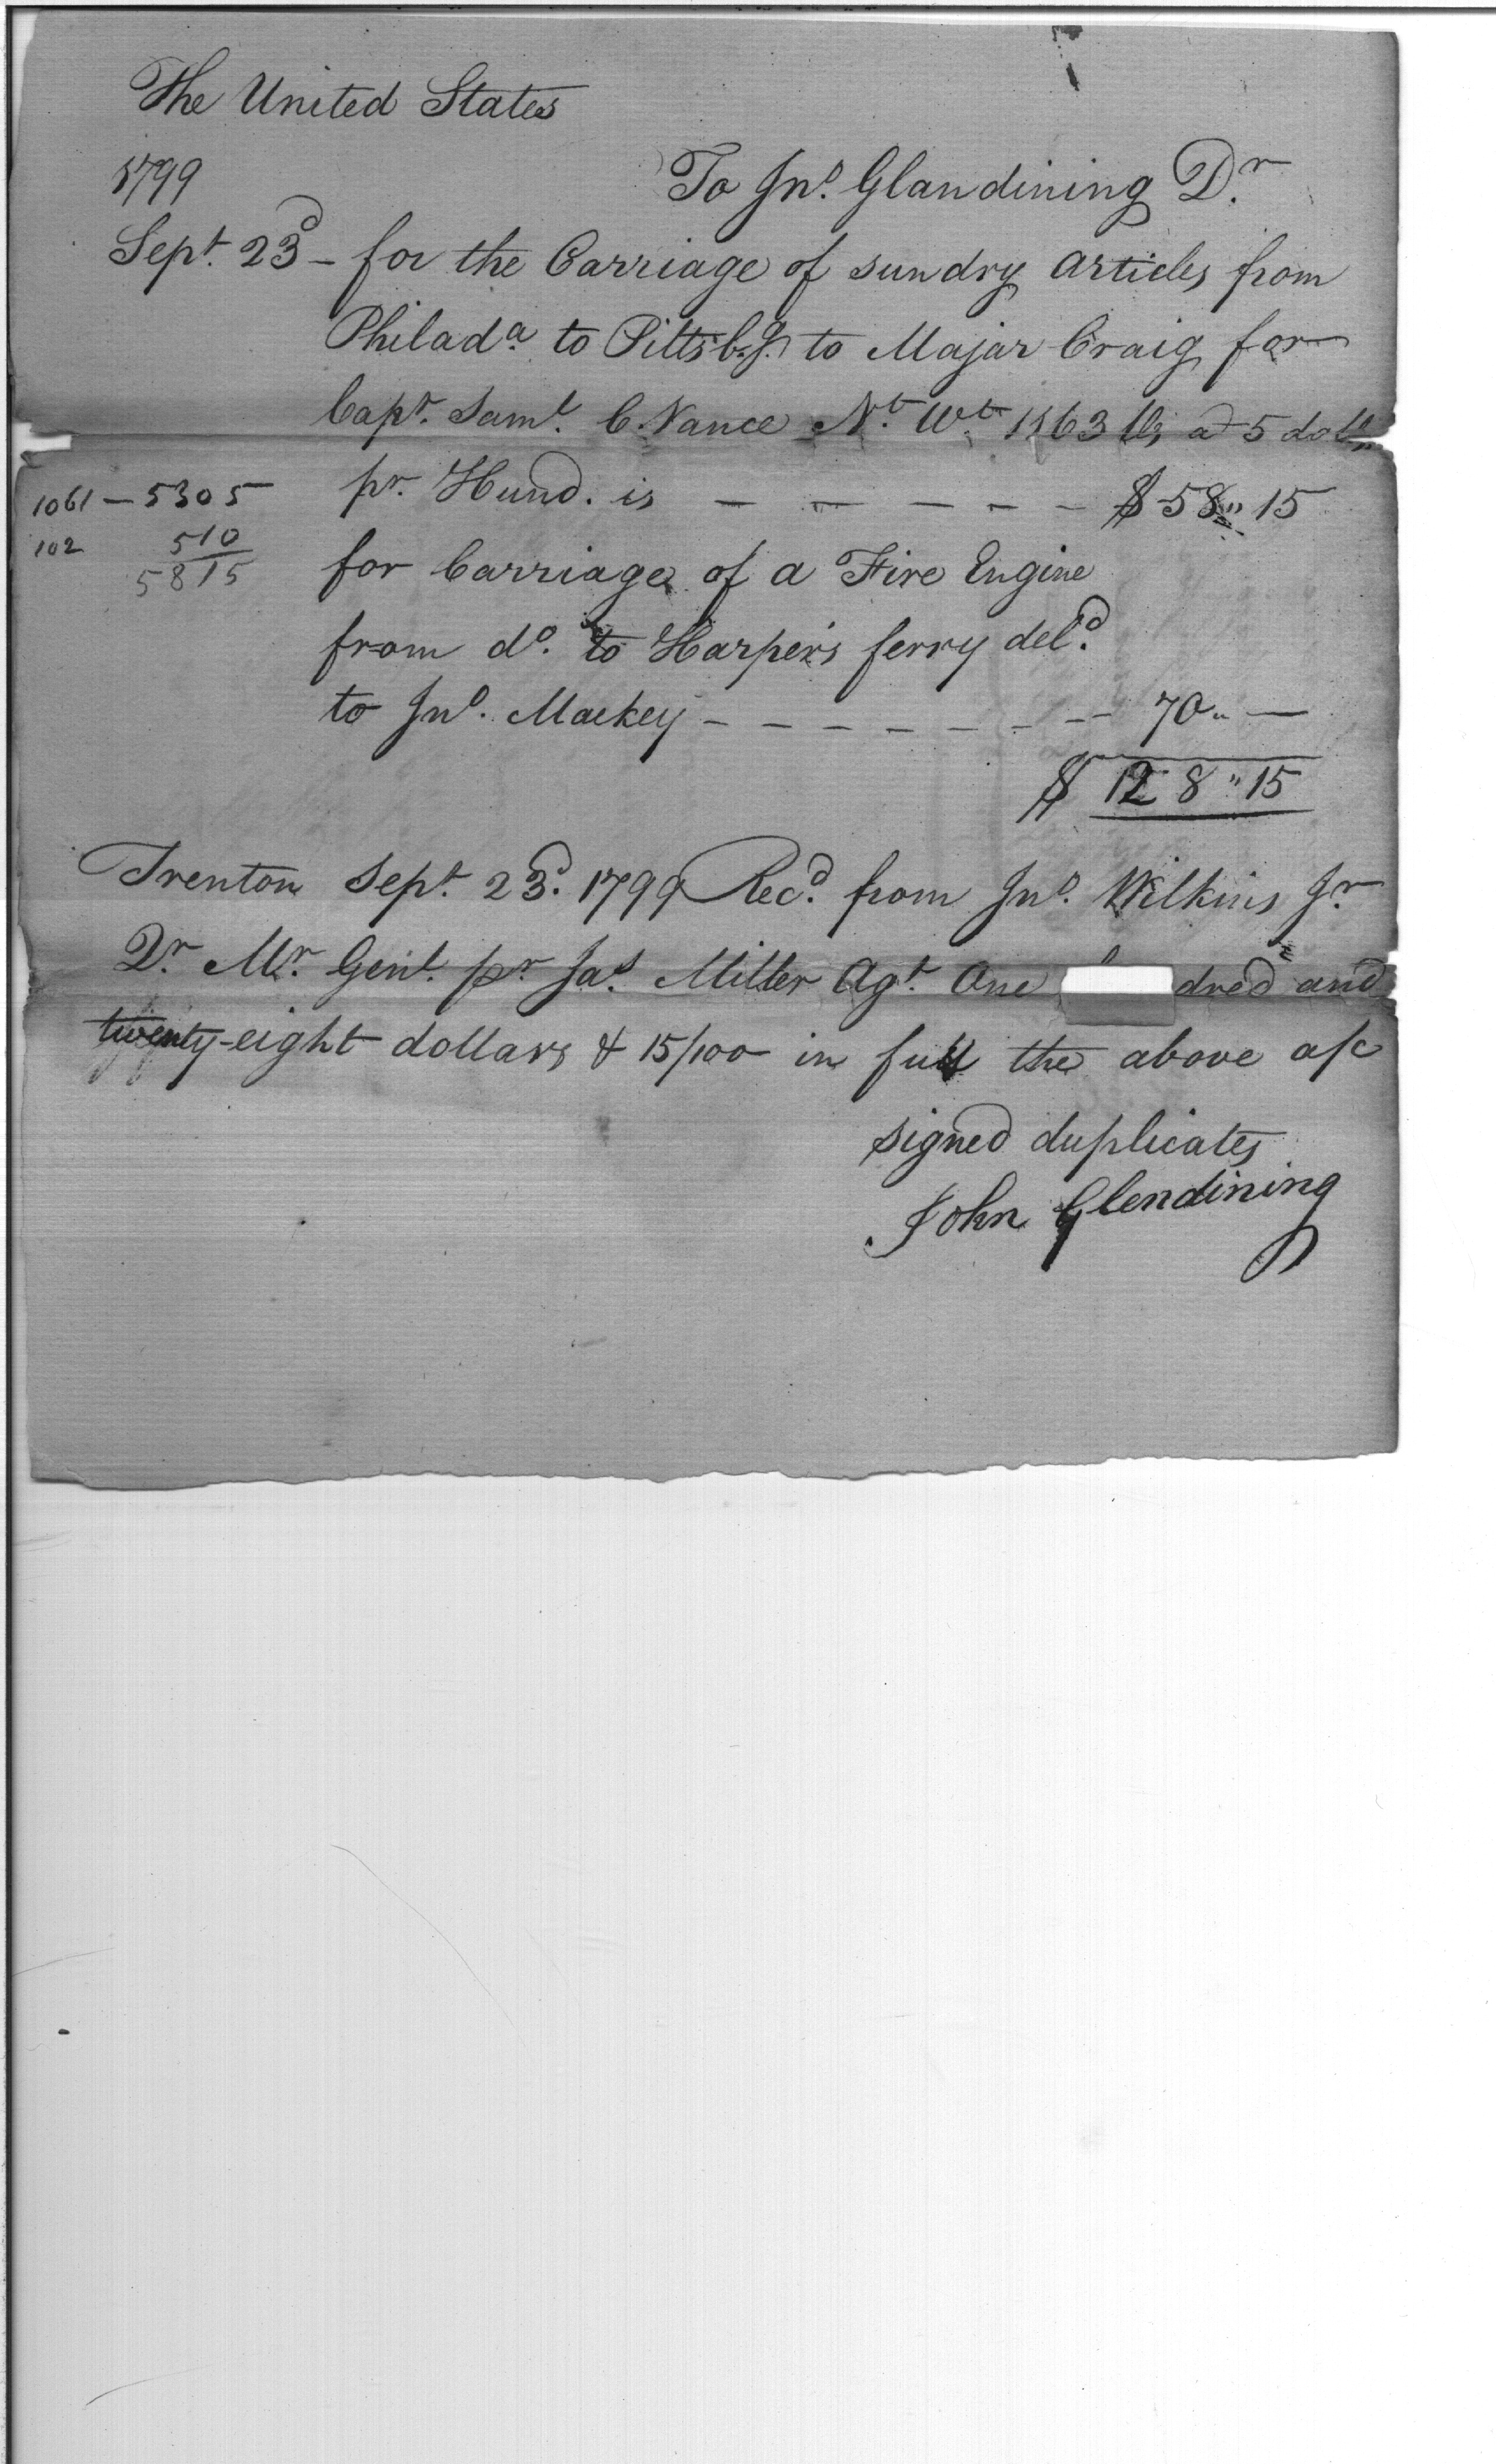 The United States
1799 To Jno. Glandining Dr.
Sept. 23d - for the Carriage of sundry articles from
Philada. to Pittsbg. to Majar Craig for
Capt. Saml. C. Vance Nt. Wt. 1163 lbs a 5 dolls
1061 - 5305 pr. Hund. is - - - - - $ 58" 15
102 510
5815 for Carriage of a Fire Engine
from do. to Harpers ferry deld.
to Jno. Mackey - - - - - - - - 70" -
$ 128" 15
Trenton Sept. 23d. 1799 Recd. from Jno. Wilkins Jr
Qr. Mr. Genl. pr Jas. Miller Agt. One dred and
twenty-eight dollars & 15/100 in full the above a/c
signed duplicates
John Glendining